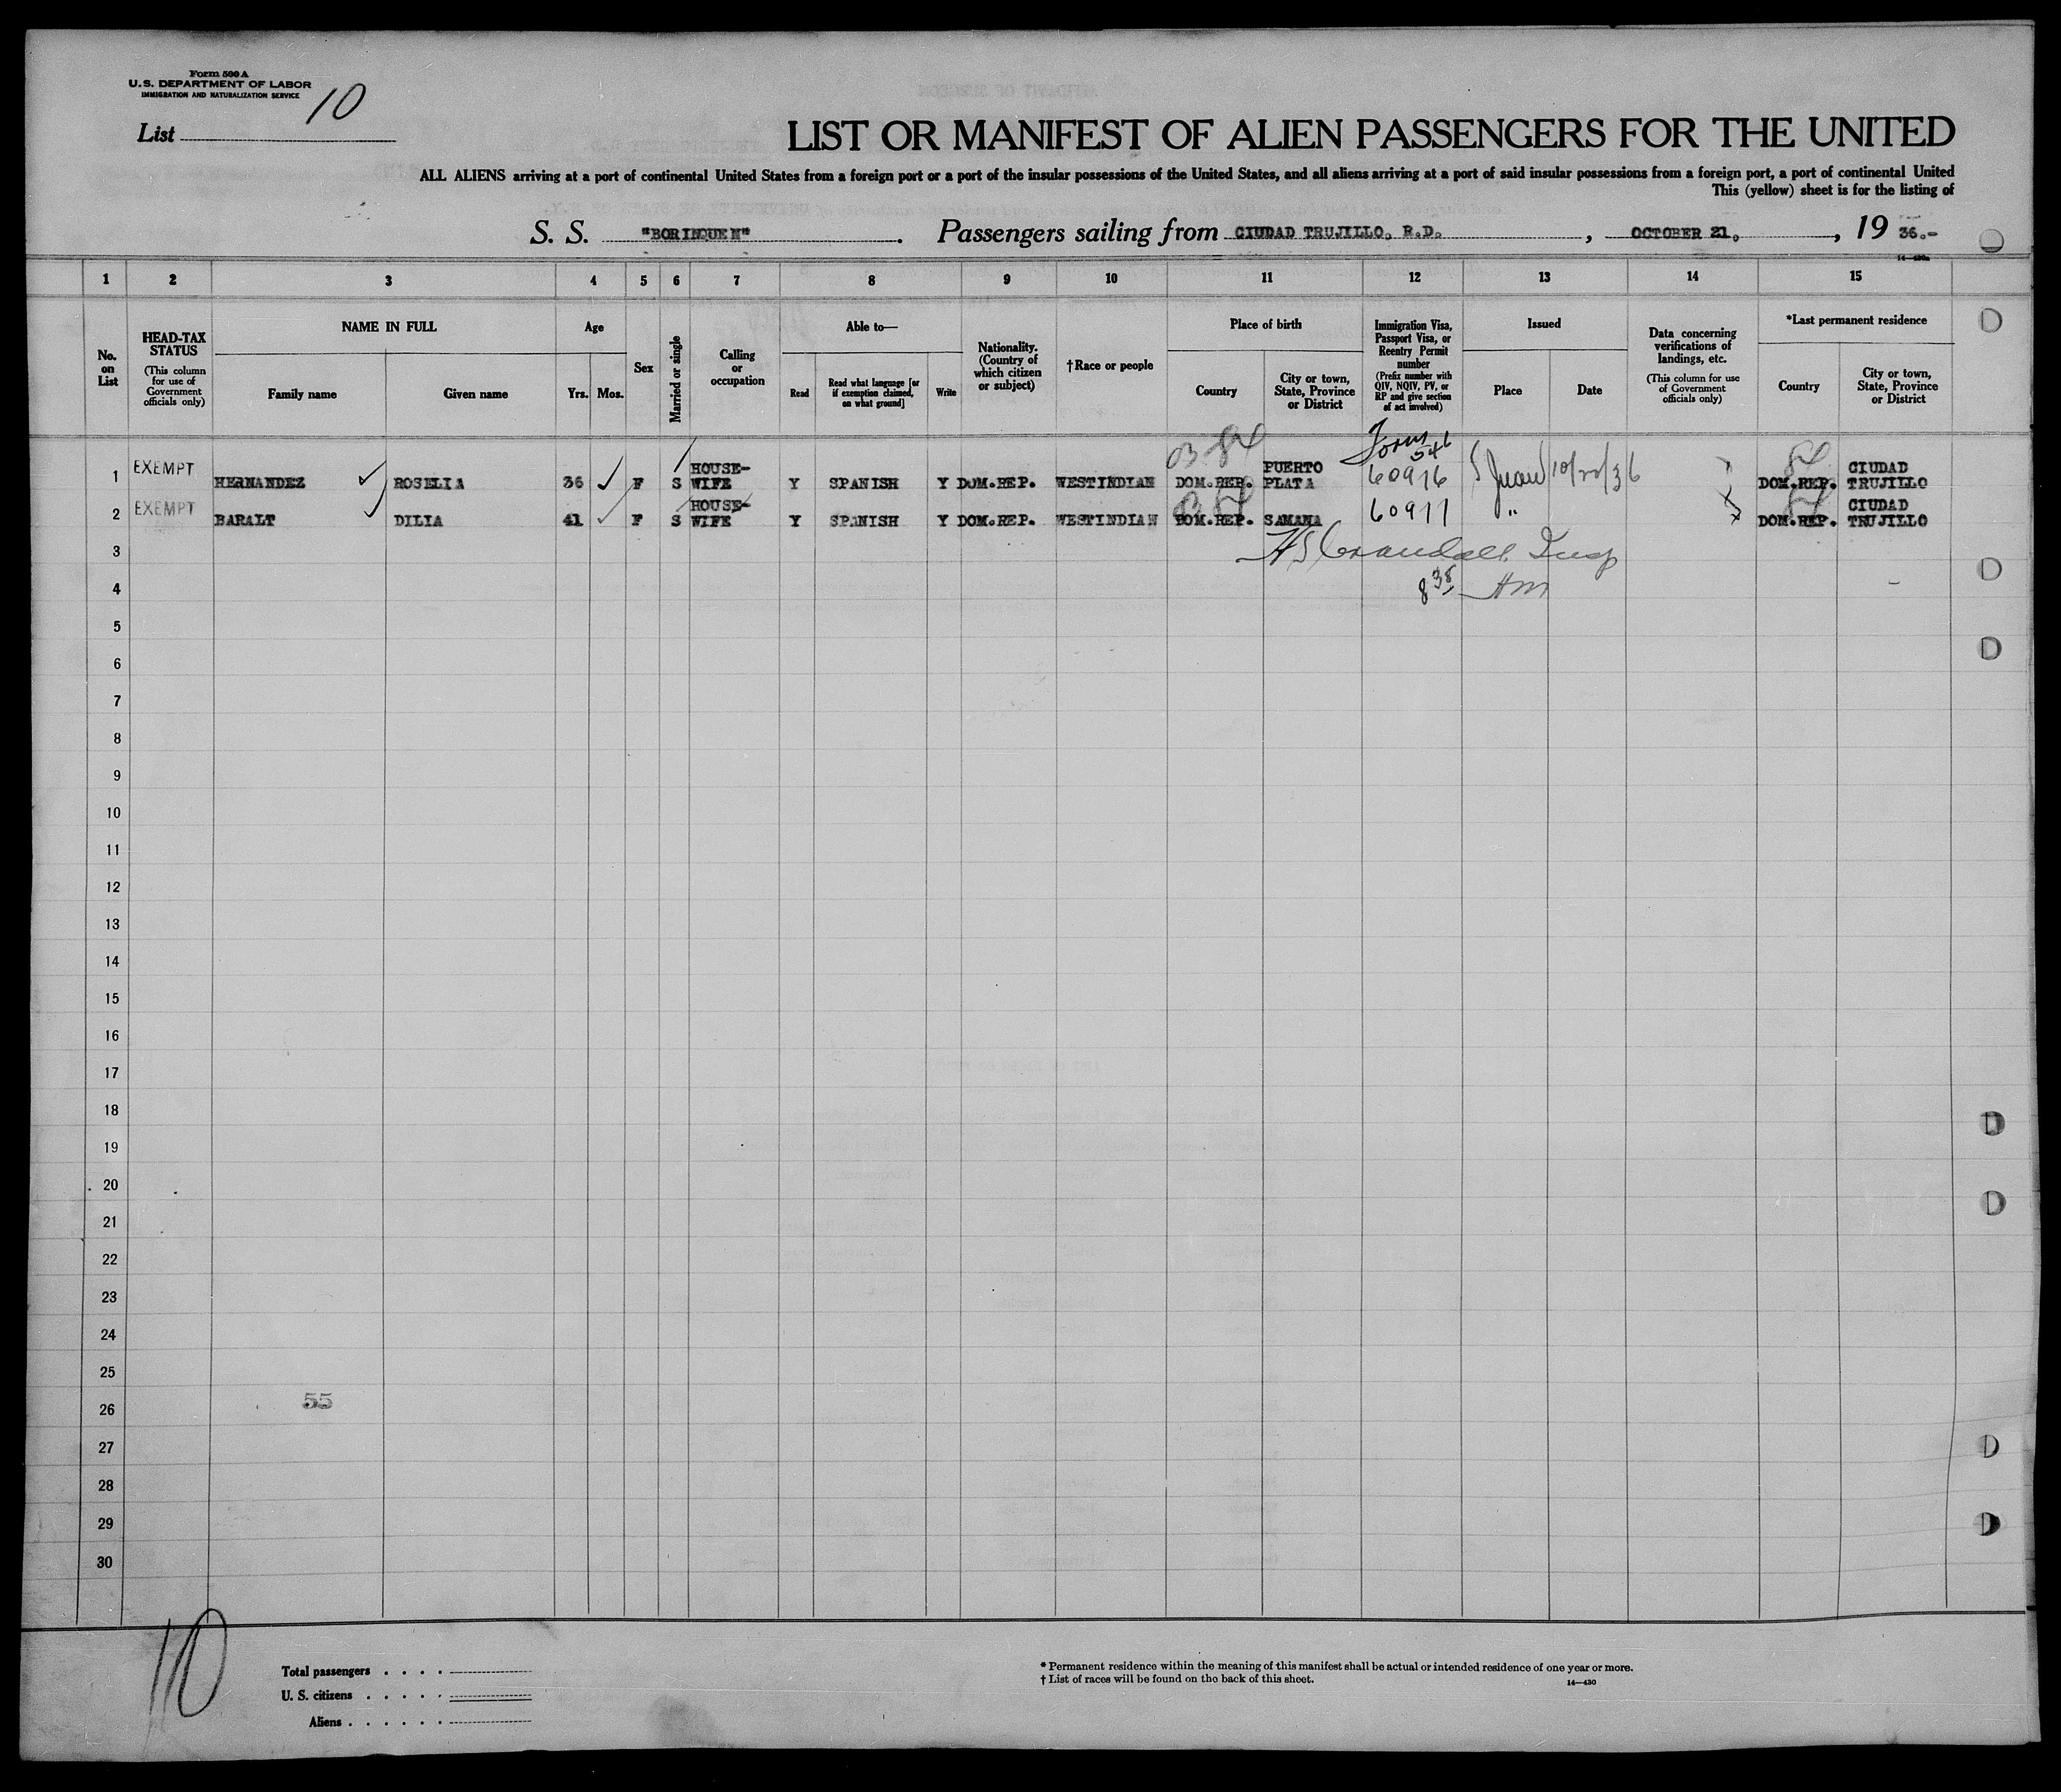 Form 500 A
U.S. DEPARTMENT OF LABOR
IMMIGRATION AND NATURALIZATION SERVICE
List 10
LIST OR MANIFEST OF ALIEN PASSENGERS FOR THE UNITED
ALL ALIENS arriving at a port of continental United States from a foreign port or a port of the insular possessions of the United States, and all aliens arriving at a port of said insular possessions from a foreign port, a port of continental United
This (yellow) sheet is for the listing of
S. S. "BORINQUEN". Passengers sailing from CIUDAD TRUJILLO, R.D., OCTOBER 21, , 19 36.-
1 2 3 4 5 6 7 8 9 10 11 12 13 14 15
No. on List
HEAD-TAX STATUS (This column for use of Government officials only)
NAME IN FULL
Family name
Given name
Age
Yrs.
Mos.
Sex
Married or single
Calling or occupation
Able to—
Read
Read what language [or if exemption claimed, on what ground]
Write
Nationality. (Country of which citizen or subject)
†Race or people
Place of birth
Country
City or town, State, Province or District
Immigration Visa, Passport Visa, or Reentry Permit number (Prefix number with QIV, NQIV, PV, or RP and give section of act involved)
Issued
Place
Date
Data concerning verifications of landings, etc. (This column for use of Government officials only)
*Last permanent residence
Country
City or town, State, Province or District
03 84 Form 546 84
1 EXEMPT HERNANDEZ ROSELIA 36 F S HOUSE-WIFE Y SPANISH Y DOM.REP. WESTINDIAN DOM.REP. PUERTO PLATA 60976 S Juan 10/22/36 DOM.REP. CIUDAD TRUJILLO
2 EXEMPT BARALT DILIA 41 F S HOUSE-WIFE Y SPANISH Y DOM.REP. WESTINDIAN DOM.REP. SAMANA 60977 " DOM.REP. CIUDAD TRUJILLO
3 HS Crandall Insp
4 8 38 AM
5
6
7
8
9
10
11
12
13
14
15
16
17
18
19
20
21
22
23
24
25
26 55
27
28
29
30
10
Total passengers . . . .
U. S. citizens . . . . .
Aliens . . . . . .
* Permanent residence within the meaning of this manifest shall be actual or intended residence of one year or more.
† List of races will be found on the back of this sheet.
14—430